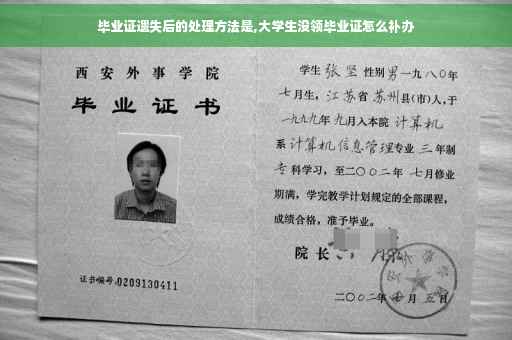 毕业证遗失后的处理方法是,大学生没领毕业证怎么补办
西安外事学院
毕业证书
证书编号:0209130411
学生 张坚 性别男一九八〇年
七月生，江苏省苏州县(市)人，于
一九九九年九月入本院 计算机
系计算机信息管理专业 三 年制
专 科学习，至二〇〇二年 七月修业
期满，学完教学计划规定的全部课程，
成绩合格，准予毕业。
院长
二〇〇二年 月 五日